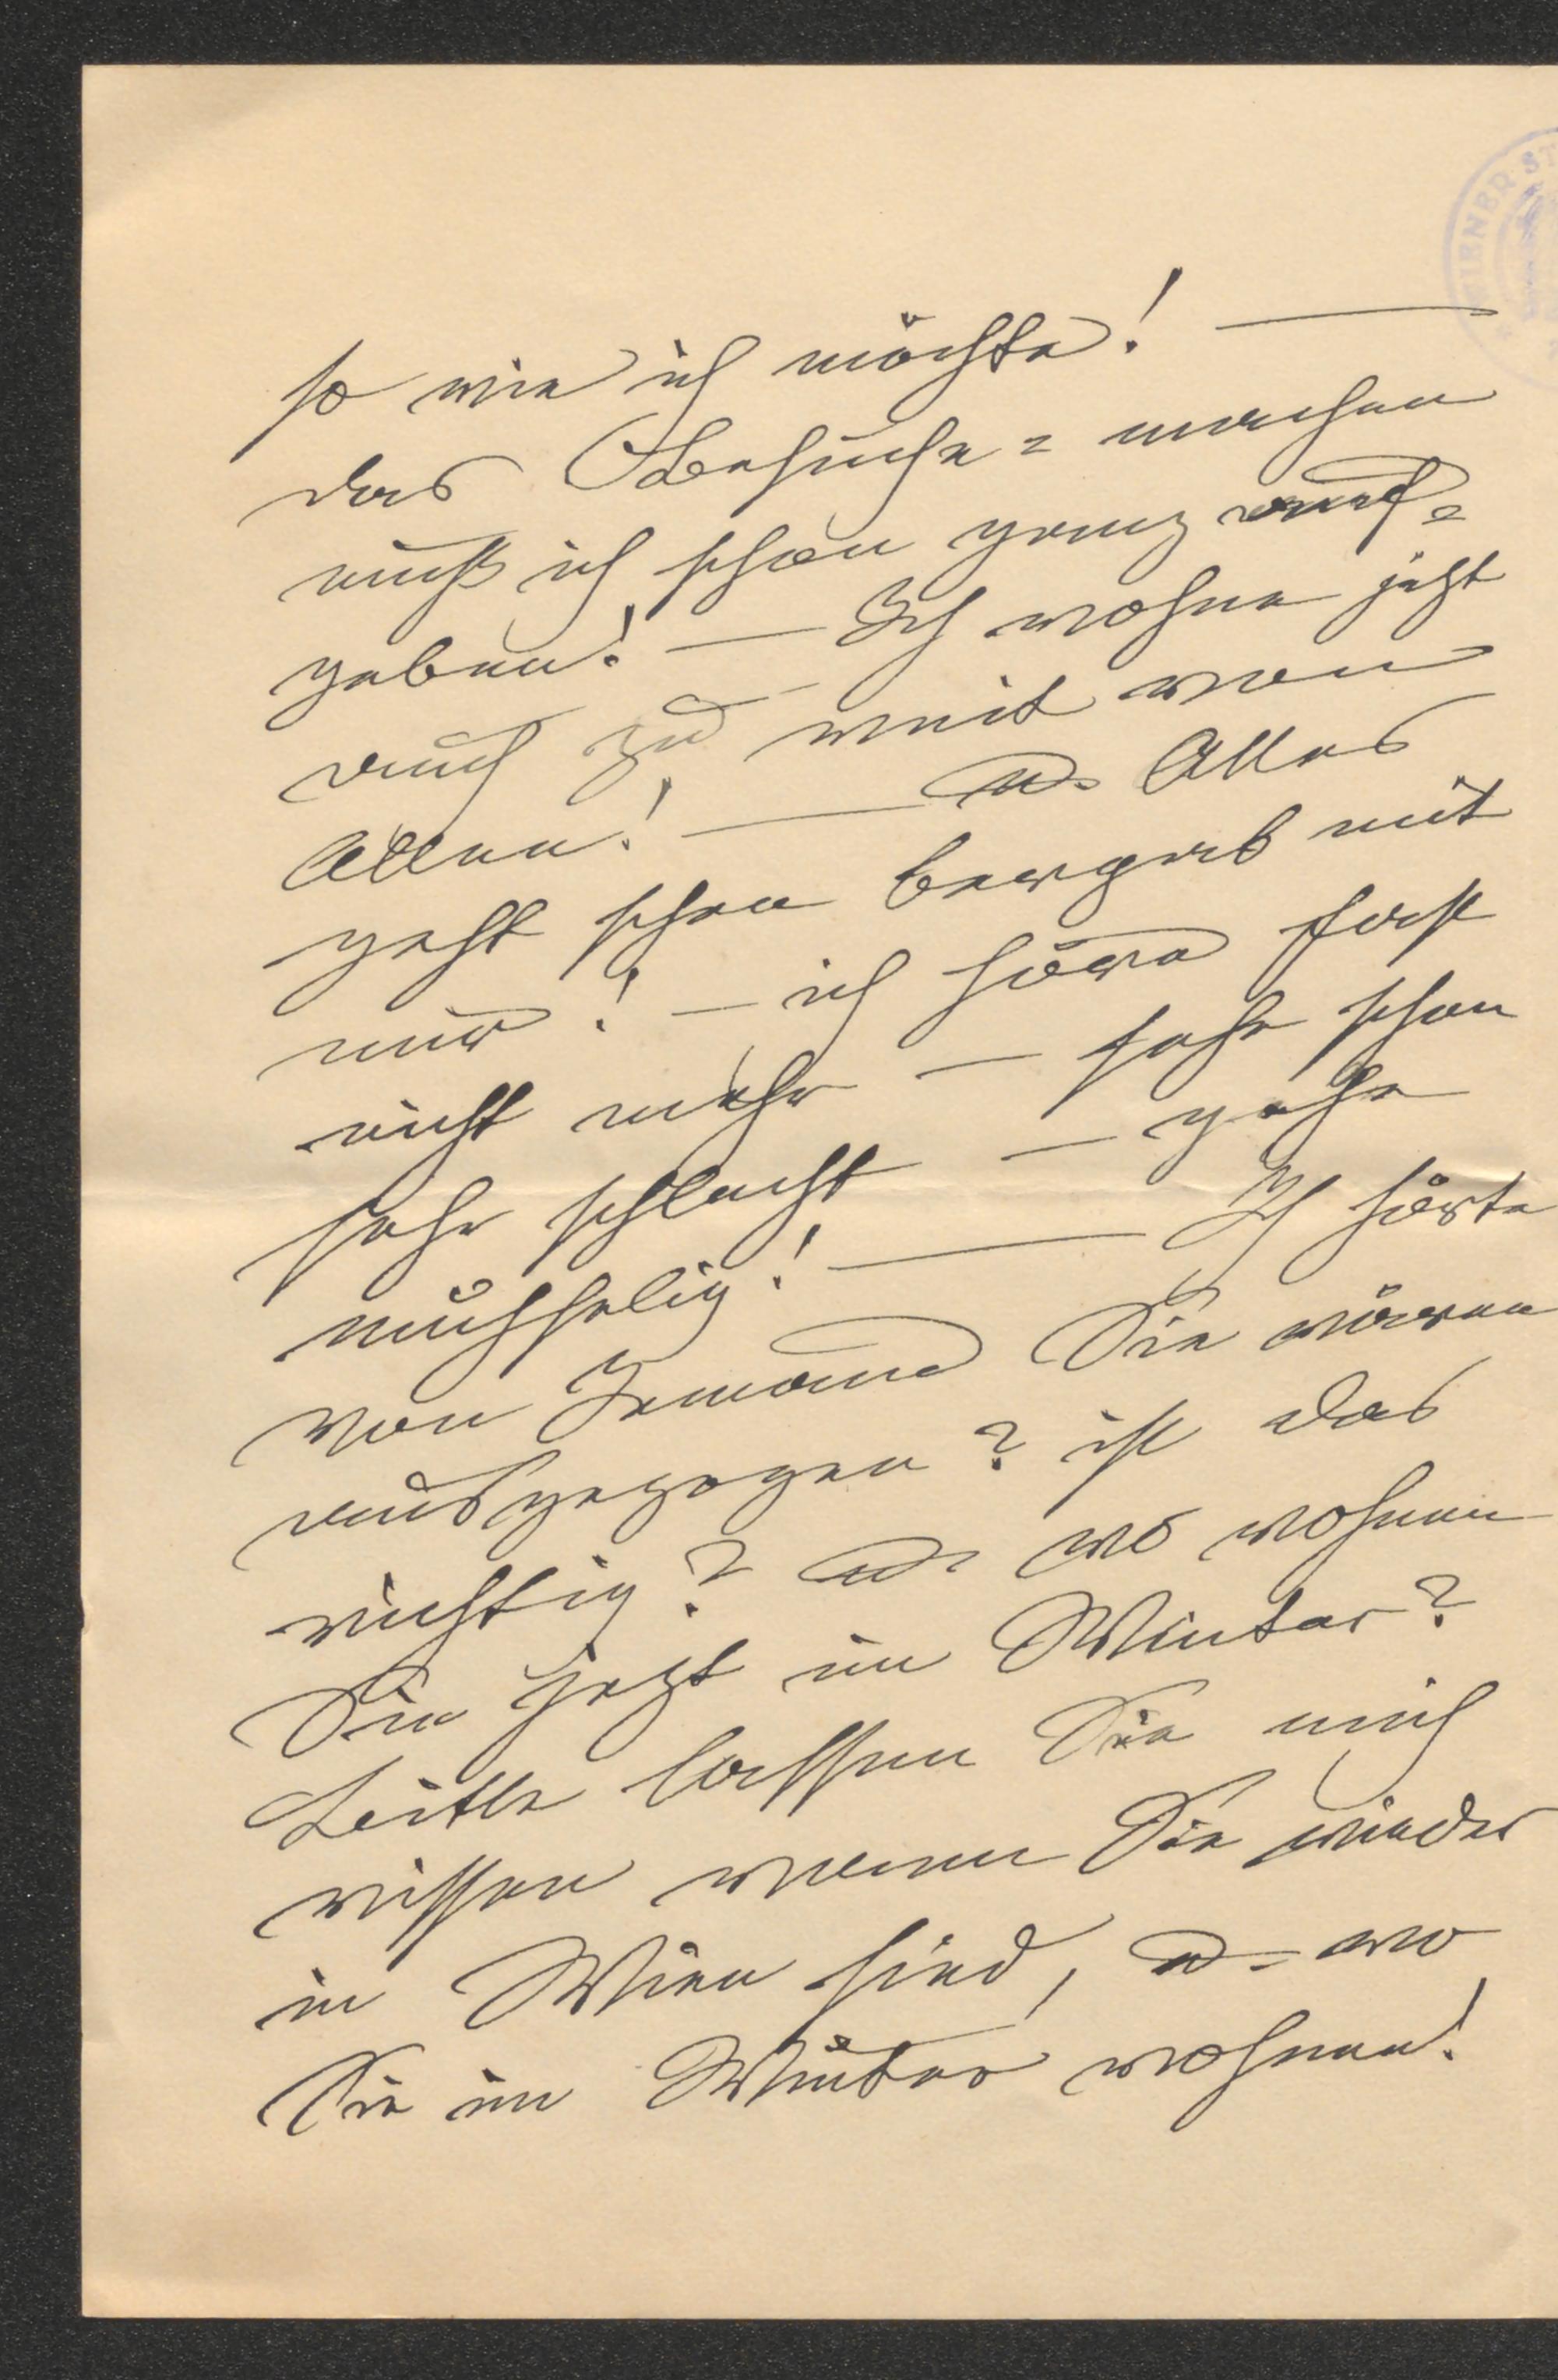 so wie ich möchte! —
das Besuche = machen
muß ich schon ganz auf=
geben! — Ich wohne jetzt
auch zu weit von
Allen! — u. Alles
geht schon bergab mit
mir! — ich höre fast
nicht mehr — sehe schon
sehr schlecht — gehe
mühselig! — Ich hörte
von Jemand Sie wären
ausgezogen? ist das
richtig? u. wo wohnen
Sie jetzt im Winter?
Bitte lassen Sie mich
wissen wenn Sie wieder
in Wien sind, u. wo
Sie im Winter wohnen!